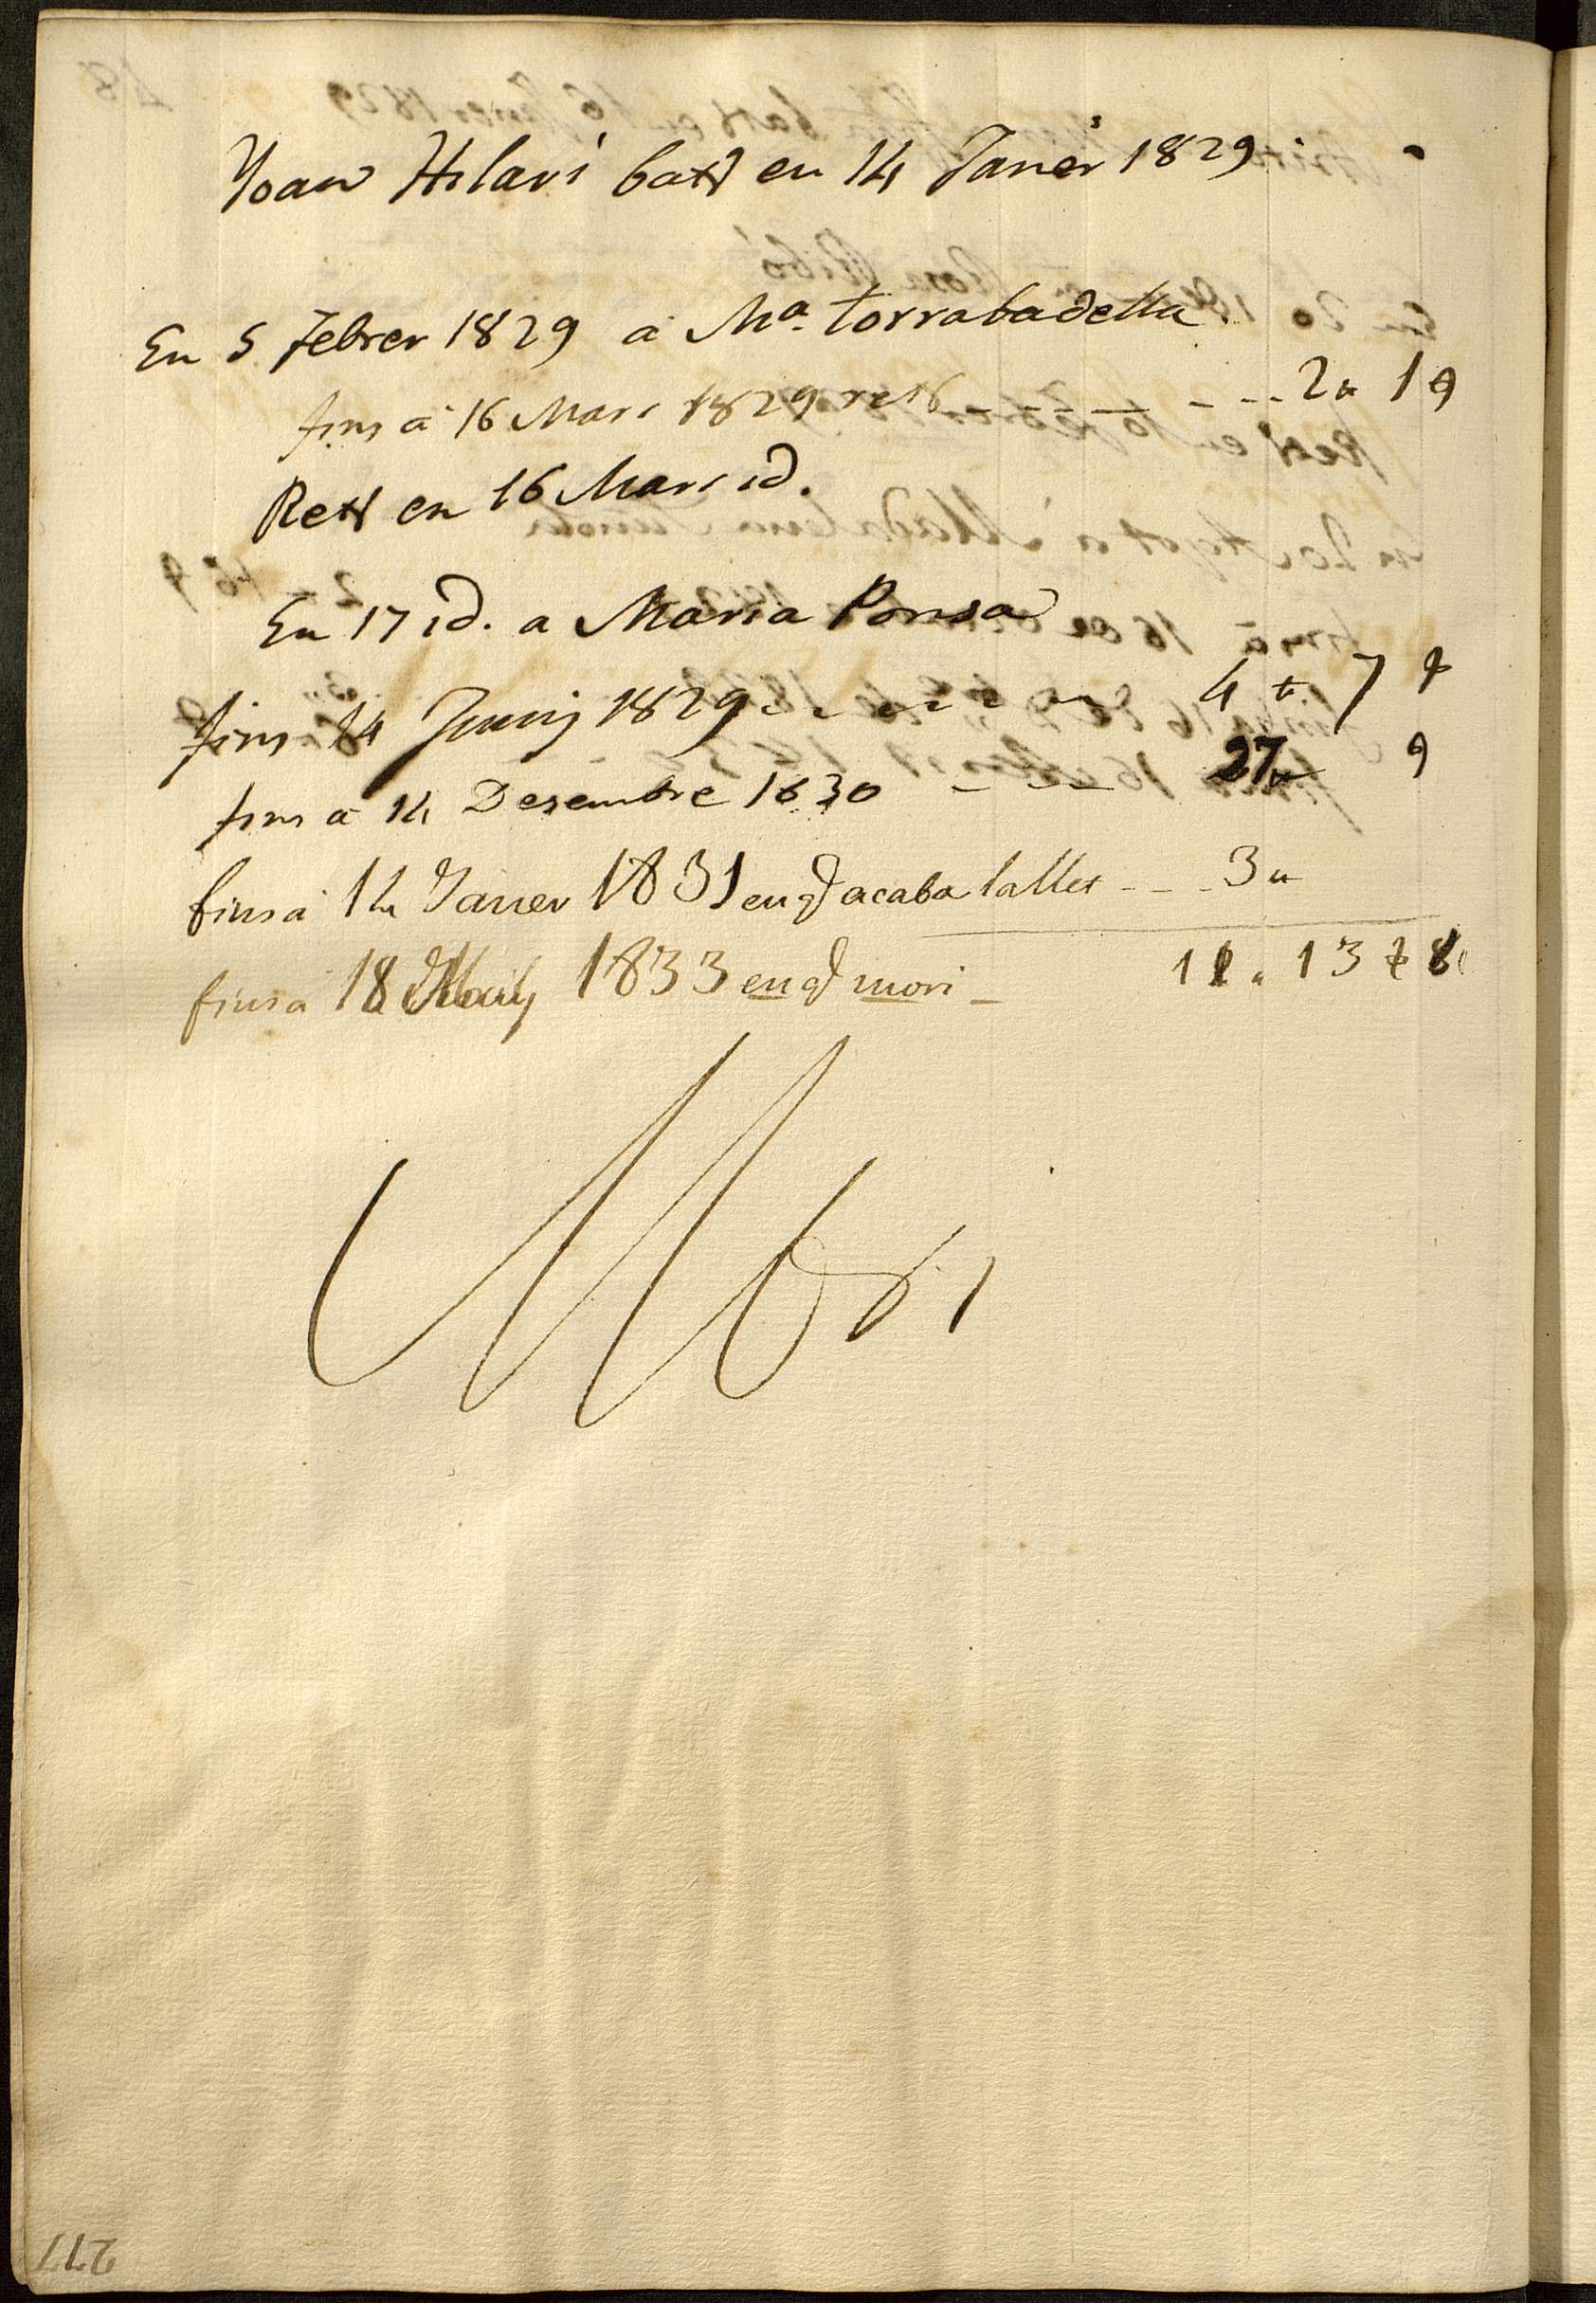 Joan Hilari batt en 14 Janer 1829
En 5 Febrer 1829 a Ma. Torrabadella.
fins à 16 Mars 1829 rest 2 " 1 9
Rett en 16 Mars id.
En 17 id. a Maria Ponsa
fins 14 Juny 1829 4 t 7 9
fins à 14 Desembre 1830 27 " 9
fins à 14 Janer 1831 en q acaba lallet 3 "
fins à 18 Maig 1833 en q mori 11 " 13 t 8
Mori